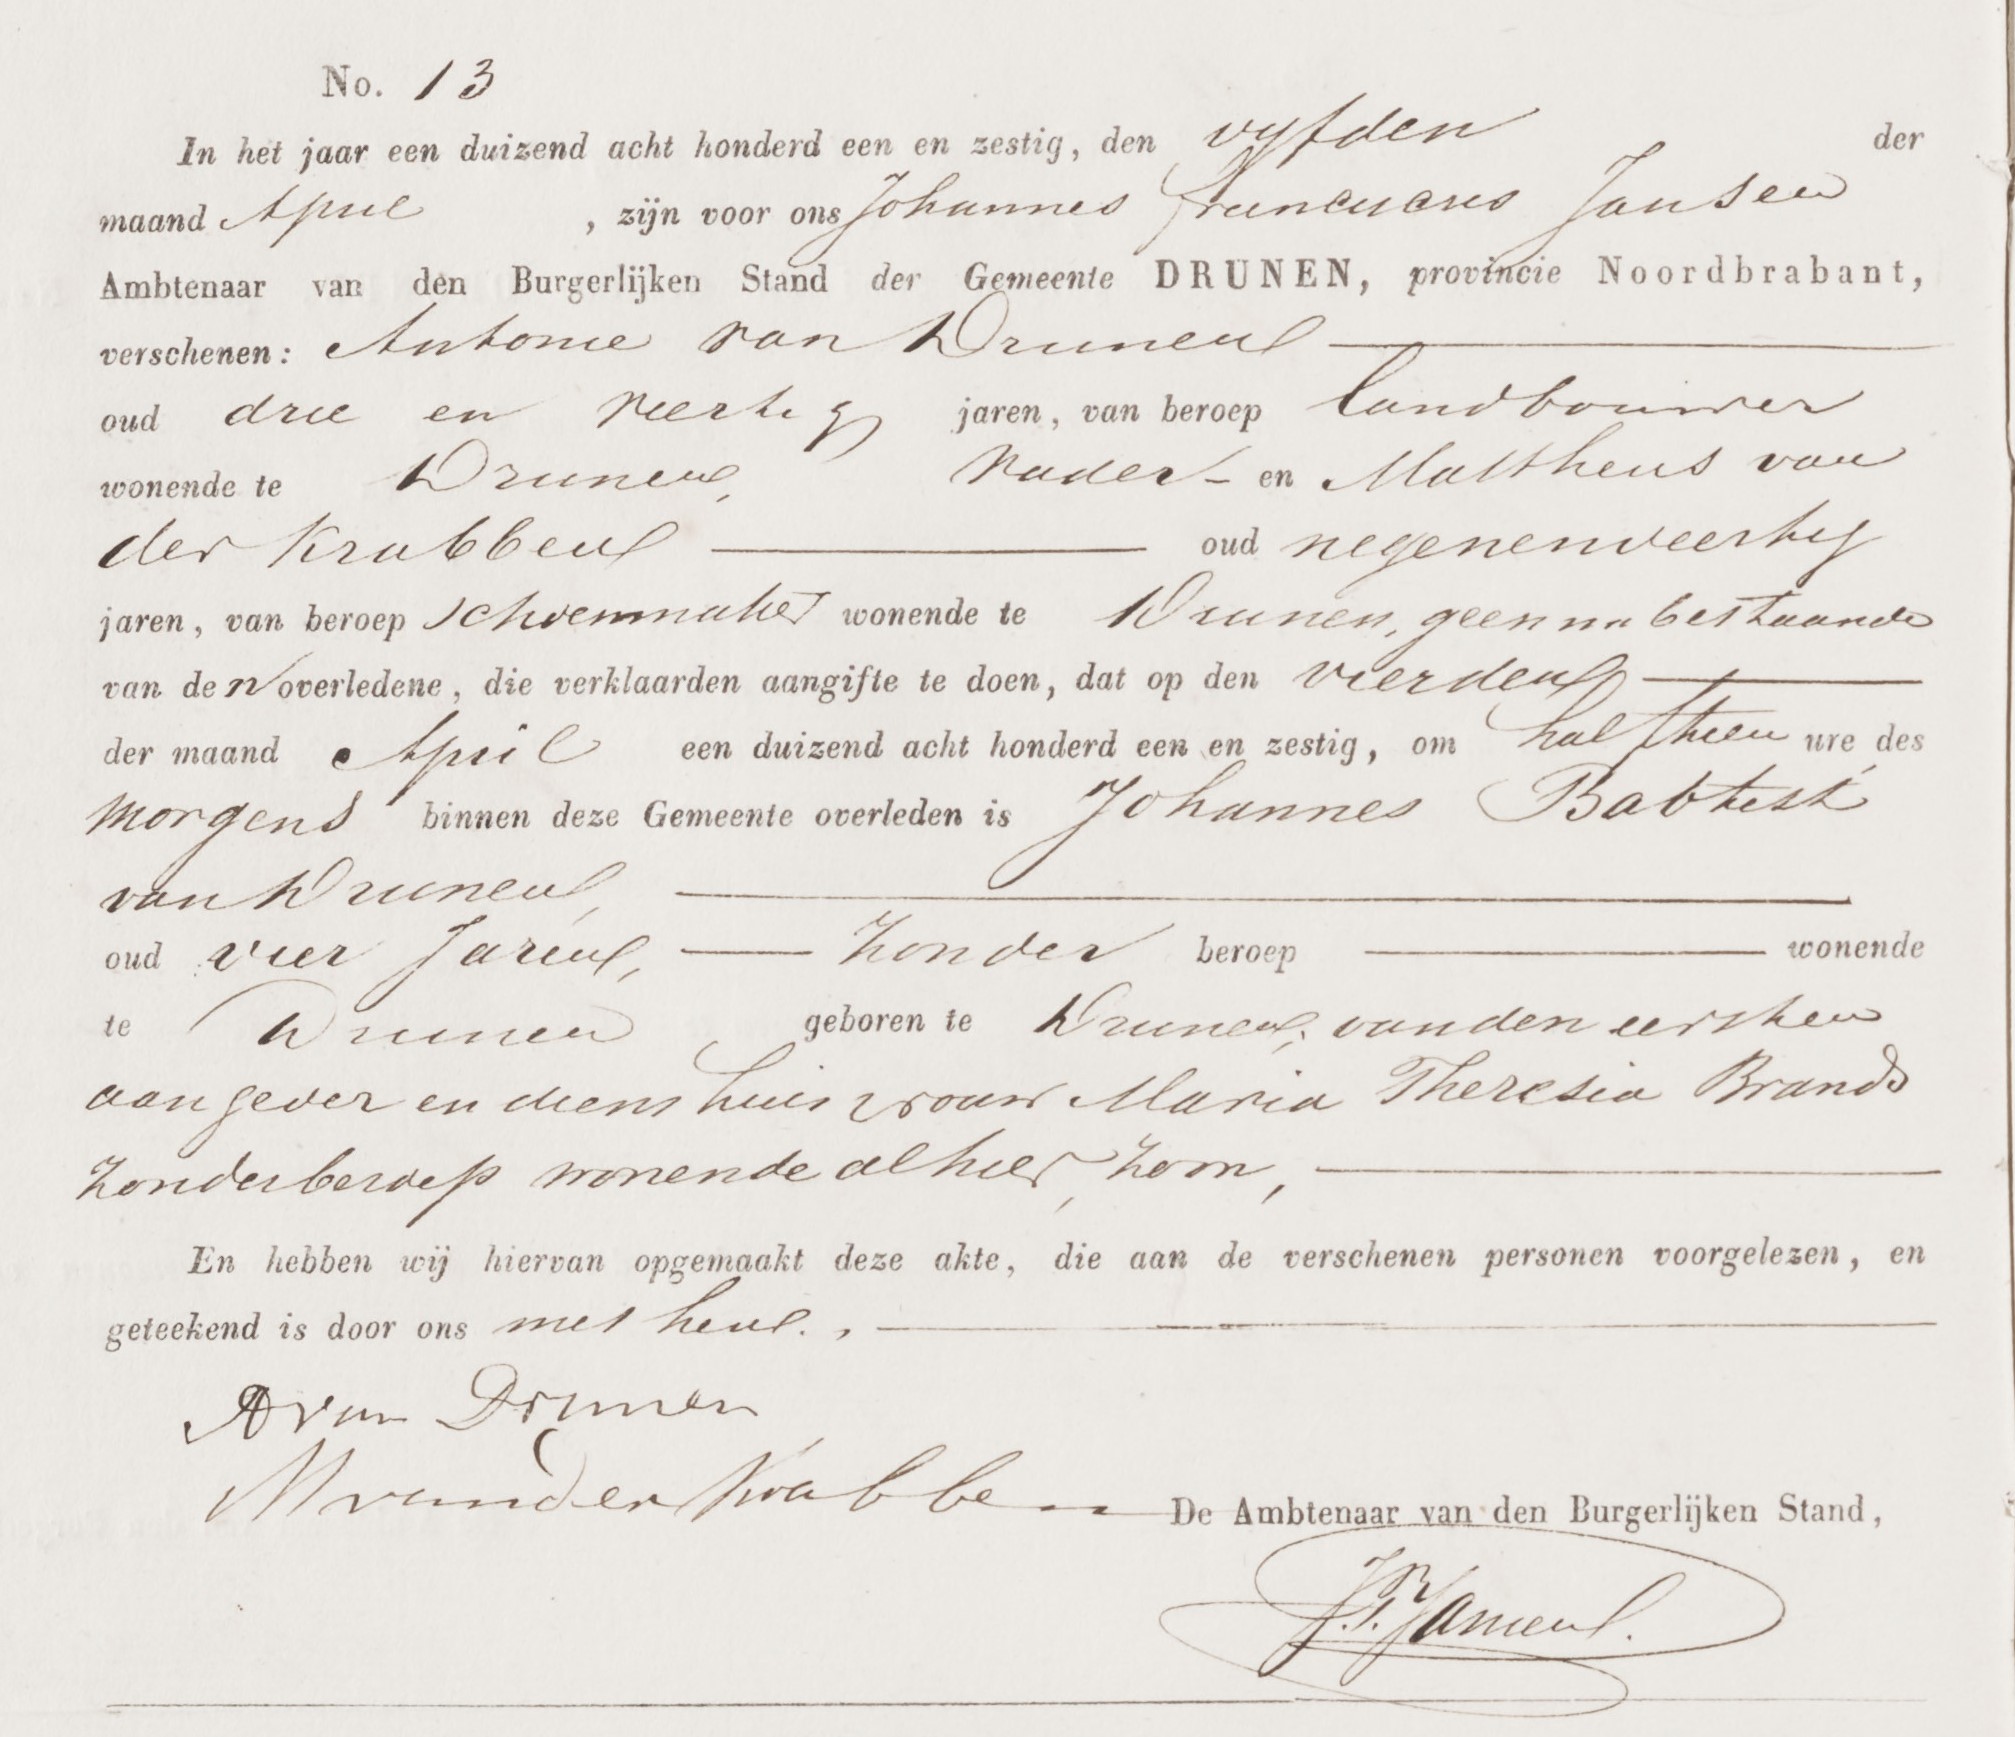 No. 13
In het jaar een duizend acht honderd een en zestig, den vyfden der
maand April , zijn voor ons Johannes Franciscus Jansen
Ambtenaar van den Burgerlijken Stand der Gemeente DRUNEN, provincie Noordbrabant,
verschenen: Antonie van Drunen
oud drie en veertig jaren, van beroep landbouwer
wonende te Drunen, vader en Mattheus van
der Krabben oud negenenveertig
jaren, van beroep schoenmaker wonende te Drunen, geen nabestaande
van den overledene, die verklaarden aangifte te doen, dat op den vierden
der maand April een duizend acht honderd een en zestig, om half tien ure des
morgens binnen deze Gemeente overleden is Johannes Babtist
van Drunen,
oud vier Jaren, zonder beroep wonende
te Drunen geboren te Drunen, van den eersten
aangever en diens huisvrouw Maria Theresia Brands
zonder beroep wonende alhier, zoon,
En hebben wij hiervan opgemaakt deze akte, die aan de verschenen personen voorgelezen, en
geteekend is door ons met hen.
A van Drunen
M van der Krabben
De Ambtenaar van den Burgerlijken Stand,
J.F. Jansen.